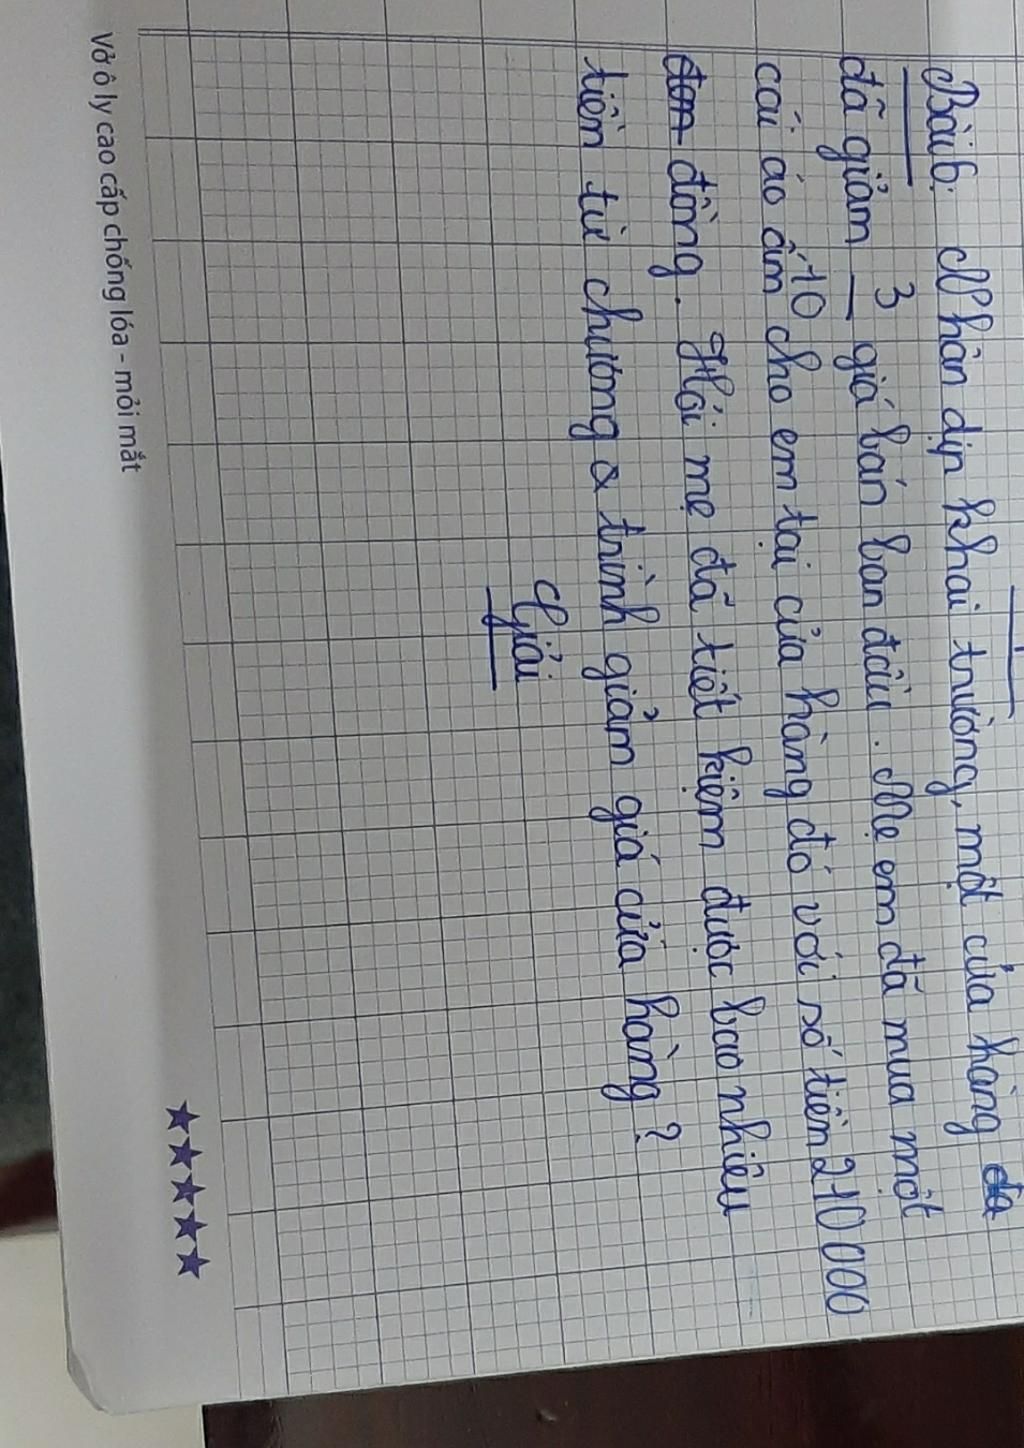 Bài 6: Nhân dịp khai trương, một cửa hàng
đã giảm 3/10 giá bán ban đầu. Mẹ em đã mua một
cái áo ấm cho em tại cửa hàng đó với số tiền 210 000
đồng. Hỏi mẹ đã tiết kiệm được bao nhiêu
tiền từ chương trình giảm giá cửa hàng?
Giải
Vở ô ly cao cấp chống lóa - mỏi mắt